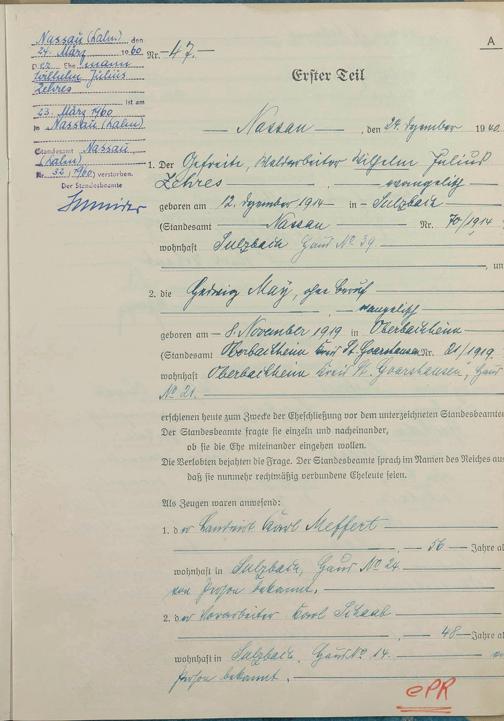 Nassau (Lahn) den
24. März 1960
Der Ehemann
Wilhelm Julius
Zehres
ist am
23. März 1960
in Nassau (Lahn)
Standesamt Nassau
(Lahn)
Nr. 32/1960) verstorben.
Der Standesbeamte
A
Nr. 47.
Erster Teil
Nassau, den 24. Dezember 1940
1. Der Gefreite, Waldarbeiter Wilhelm Julius
Zehres
evangelisch
geboren am 12. Dezember 1914 in Sulzbach
(Standesamt Nassau Nr. 70/1914
wohnhaft Sulzbach Haus No 39
, un
2. die Hedwig May, ohne Beruf
evangelisch
geboren am 8. November 1919 in Oberbachheim
(Standesamt Oberbachheim Kreis St. Goarshausen Nr. 21/1919
wohnhaft Oberbachheim Kreis St. Goarshausen, Haus
No 21.
erschienen heute zum Zwecke der Eheschließung vor dem unterzeichneten Standesbeamte
Der Standesbeamte fragte sie einzeln und nacheinander,
ob sie die Ehe miteinander eingehen wollen.
Die Verlobten bejahten die Frage. Der Standesbeamte sprach im Namen des Reiches aus
daß sie nunmehr rechtmäßig verbundene Eheleute seien.
Als Zeugen waren anwesend:
1. der Landwirt Karl Meffert
, 56 Jahre al
wohnhaft in Sulzbach, Haus No 24
von Person bekannt.
2. der Vorarbeiter Karl Schaab
, 48 Jahre al
wohnhaft in Sulzbach, Haus No 14.
Person bekannt.
ePR